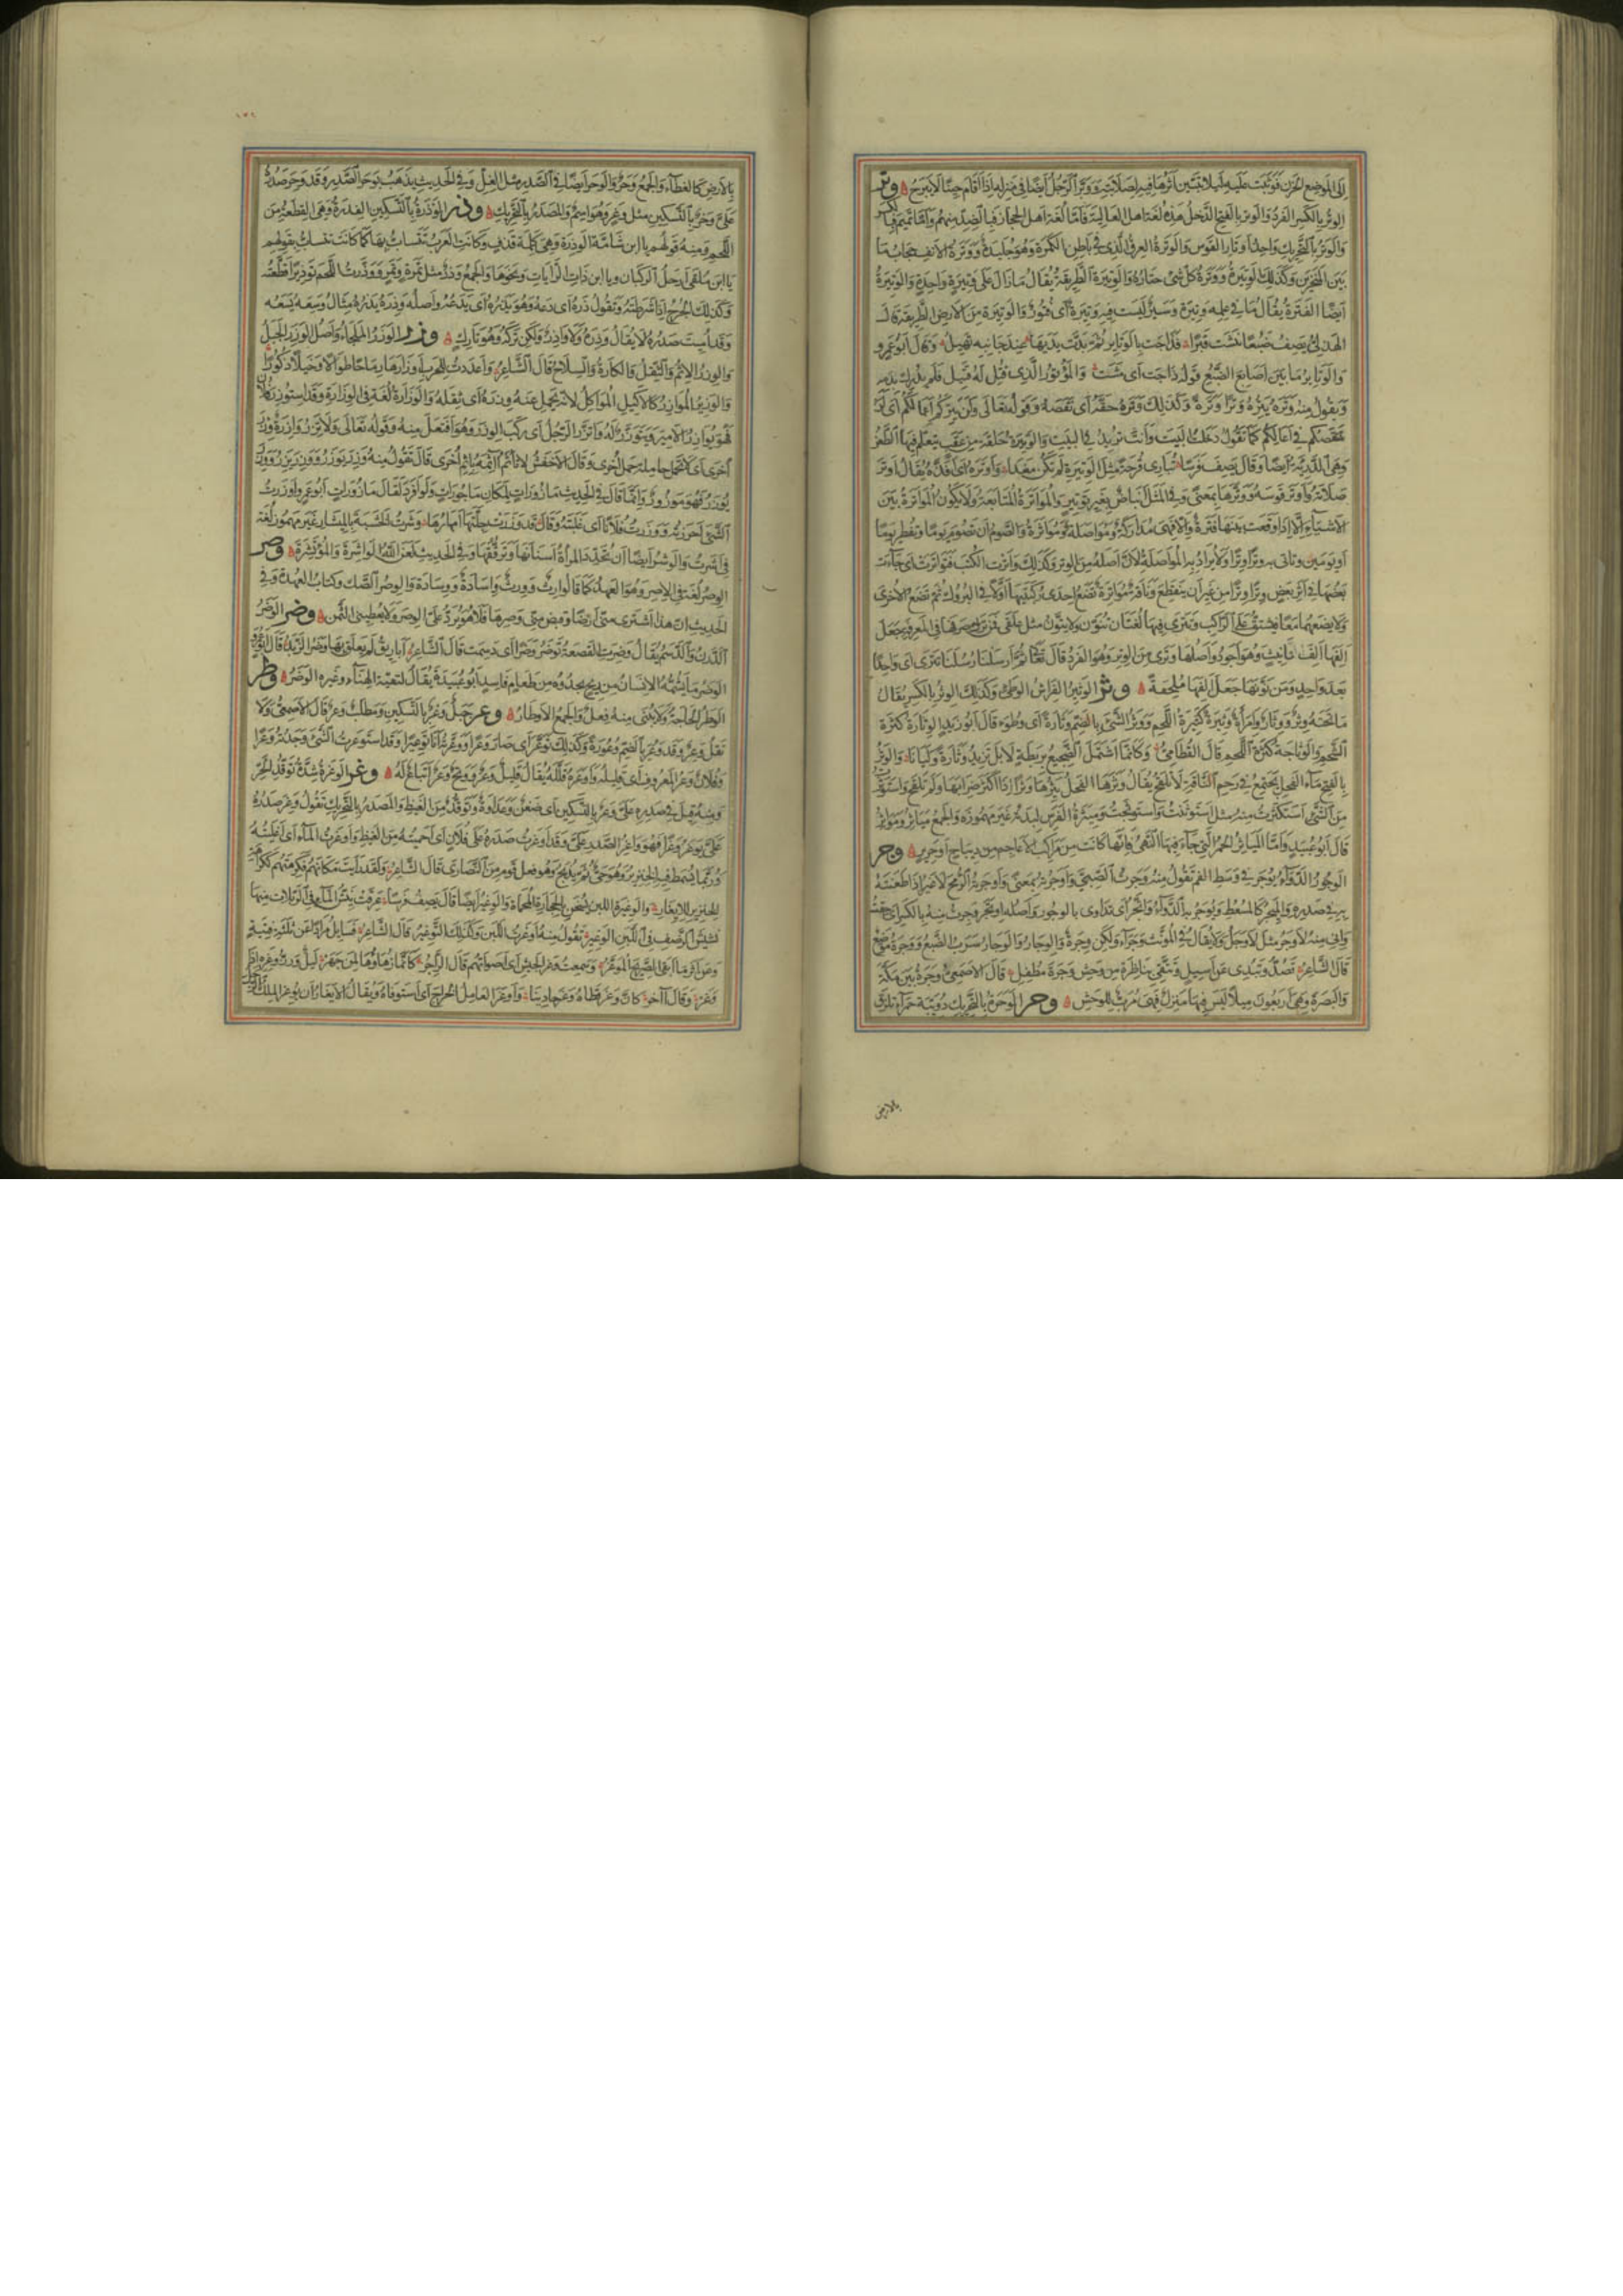 إلى الموضع الحزن فتثبت عليه ليلا يتبين أثرها فيه لصلابته ووبر الرجل أيضا في منزله إذا أقام حينا لا يبرح وتر
الوتر بالكسر الفرد والوتر بالفتح الذحل هذه لغة اهل العالية فأما لغة اهل الحجاز فبالضد منهم وأما تميم فبالكسر
والوتر بالتحريك واحد أوتار القوس والوترة العرق الذي في باطن الكمرة وهو جليدة ووترة الأنف حجاب ما
بين المنخرين وكذلك الوتيرة ووترة كل شئ حتاره والوتيرة الطريقة يقال ما زال على وتيرة واحدة والوتيرة
أيضا الفترة يقال ما في عمله وتيرة وسير ليست فيه وتيرة أي فتور والوتيرة من الأرض الطريقة قال
الهذلي يصف ضبعا نبشت قبرا فذاحت بالوتاير ثم بدت يديها عند جانبه تهيل وقال أبو عمرو
والوتاير ما بين أصابع الضبع قوله ذاحت أي مشت والموتور الذي قتل له قتيل فلم يدرك بدمه
وتقول منه وتره يتره وترا وترة وكذلك وتره حقه أي نقصه وقوله تعالى ولن يتركم أعمالكم أي لن
ينتقصكم في أعمالكم كما تقول دخلت البيت وأنت تريد في البيت والوتيرة حلقة من عقب يتعلم فيها الطعن
وهي الدرية أيضا وقال يصف فرسا تبارى قرحة مثل الوتيرة لم تكن مغدا وأوتره أي أفذه يقال أوتر
صلاته وأوتر قوسه ووترها بمعنى وفي المثل إنباض بغير توتير والمواترة المتابعة ولا يكون المواترة بين
الأشياء إلا إذا وقعت بينها فترة وإلا فهي مداركة ومواصلة ومواترة الصوم أن تصوم يوما وتفطر يوما
أو يومين وتأتي به وترا وترا ولا يراد به المواصلة لأن أصله من الوتر وكذلك واترت الكتب فتواترت أي جاءت
بعضها في أثر بعض وترا وترا من غير أن ينقطع وناقة مواترة تضع إحدى ركبتيها أولا في البروك ثم تضع الأخرى
ولا تضعهما معا فيشق على الراكب وتترى فيها لغتان تنون ولا تنون مثل علقى فمن لم يصرفها في المعرفة جعل
ألفها ألف تأنيث وهو أجود وأصلها وترى من الوتر وهو الفرد قال تعالى ثم أرسلنا رسلنا تترى أي واحدا
بعد واحد ومن نونها جعل ألفها ملحقة وثر الوثير الفراش الوطئ وكذلك الوثر بالكسر يقال
ما تحته وثر ووثار وامرأة وثيرة كثيرة اللحم ووثر الشئ بالضم وثارة أي وطؤ قال أبو زيد الوثارة كثرة
الشحم والوثاجة كثرة اللحم قال القطامي وكأنما اشتمل الضجيع بريطة لا بل تزيد وثارة وليانا والوثر
بالفتح ماء الفحل يجتمع في رحم الناقة ثم لا تلقح يقال وثرها الفحل يثرها وثرا إذا أكثر ضرابها ولم تلقح واستوثرت
من الشئ استكثرت منه مثل استوثنت واستوثجت وميثرة الفرس لبدته غير مهموزة والجمع مياثر ومواثر
قال أبو عبيد وأما المياثر الحمر التي جاء فيها النهي فإنها كانت من مراكب الأعاجم من ديباج أو حرير وجر
الوجور الدواء يوجر في وسط الفم تقول منه وجرت الصبي وأوجرته بمعنى وأوجرته الرمح لا غير إذا طعنته
به في صدره والميجر كالمسعط يوجر به الدواء واتجر أي تداوى بالوجور وأصله اوتجر ووجرت منه بالكسر أي خفت
وإني منه لأوجر مثل لأوجل ولا يقال في المؤنث وجراء ولكن وجرة والوجار والوجار سرب الضبع ووجرة موضع
قال الشاعر تصد وتبدي عن أسيل وتتقي بناظرة من وحش وجرة مطفل قال الأصمعي وجرة بين مكة
والبصرة وهي أربعون ميلا ليس فيها منزل فهي مرب للوحش وحر الوحرة بالتحريك دويبة حمراء تلزق
بالأرض
١٥١
بالأرض كالعظاء والجمع وحر والوحر أيضا في الصدر مثل الغل وفي الحديث يذهب بوحر الصدر وقد وحر صدره
علي وحر بالتسكين مثل وغر وهو اسم والمصدر بالتحريك وذر الوذرة بالتسكين الفدرة وهي القطعة من
اللحم ومنه قولهم يا ابن شامة الوذرة وهي كلمة قذف وكانت العرب تتساب بها كما كانت تتساب بقولهم
يا ابن ملقى أرحل الركبان ويا ابن ذات الرايات ونحوها والجمع وذر مثل تمرة وتمر ووذرت اللحم توذيرا قطعته
وكذلك الجرح إذا شرطته وتقول ذره أي دعه وهو يذره أي يدعه وأصله وذره يذره مثال وسعه يسعه
وقد أميت صدره لا يقال وذره ولا واذر ولكن تركه وهو تارك وزر الوزر الملجاء وأصل الوزر الجبل
والوزر الإثم والثقل والكارة والسلاح قال الشاعر وأعددت للحرب أوزارها رماحا طوالا وخيلا ذكورا
والوزير الموازر كالأكيل المواكل لأنه يحمل عنه وزره أي ثقله والوزارة لغة في الوزارة وقد استوزر فلان
فهو يوازر الأمير ويتوزر له واتزر الرجل أي ركب الوزر وهو افتعل منه وقوله تعالى ولا تزر وازرة وزر
أخرى أي لا تحمل حاملة حمل أخرى وقال الأخفش لا تأثم آثمة بإثم أخرى قال تقول منه وزر يوزر ووزر يزر ووزر
يوزر فهو موزور وإنما قال في الحديث مأزورات لمكان مأجورات ولو أفرد لقال مأزورات أبو عمرو أوزرت
الشئ أحرزته ووزرت فلانا أي غلبته وقال قد وزرت جلتها أمهارها وشرت الخشبة بالميشار غير مهموز لغة
في أشرت والوشر أيضا أن تحدد المرأة أسنانها وترققها وفي الحديث لعن الله الواشرة والموتشرة وصر
الوصر لغة في الإصر وهو العهد كما قالوا إرث وورث وإسادة ووسادة والوصر الصك وكتاب العهدة وفي
الحديث إن هذا اشترى مني أرضا وقبض مني وصرها فلا هو يرد علي الوصر ولا يعطيني الثمن وضر الوضر
الدرن والدسم يقال وضرت القصعة توضر وضرا أي دسمت قال الشاعر أباريق لم يعلق بها وضر الزبد قال أبو عمرو
الوضر ما يشمه الإنسان من ريح يجده من طعام فاسد أبو عبيدة يقال لبقية الهناء وغيره الوضر وطر
الوطر الحاجة ولا يبنى منه فعل والجمع الأوطار وعر جبل وعر بالتسكين ومطلب وعر قال الأصمعي ولا
تقل وعر وقد وعر بالضم وعورة وكذلك توعر أي صار وعرا ووعرته أنا توعيرا وقد استوعرت الشئ وجدته وعرا
وفلان وعر المعروف أي قليله وأوعره قلله يقال قليل وعر ووتح وعر إتباع له وغر الوغرة شدة توقد الحر
ومنه قيل في صدره علي وغر بالتسكين أي ضغن وعداوة وتوقد من الغيظ والمصدر بالتحريك تقول وغر صدره
علي يوغر وغرا فهو واغر الصدر علي وقد أوغرت صدره على فلان أي أحميته من الغيظ وأوغرت الماء أي أغليته
وربما يسمط فيه الخنزير وهو حي ثم يذبح وهو فعل قوم من النصارى قال الشاعر ولقد رأيت مكانهم فكرهتهم ككراهة
الخنزير للإيغار والوغيرة اللبن يسخن بالحجارة المحماة والوغير أيضا قال يصف فرسا عرقت ينش الماء في الربلات منها
نشيش الرضف في اللبن الوغير تقول منه أوغرت اللبن وكذلك التوغير قال الشاعر فسايل مرادا عن ثلاثة فتية
وعن أثر ما أبقى الصريح الموغر وسمعت وغر الجيش أي أصواتهم قال الراجز كأنما زهاؤها لمن جهر ليل ورز وغره إذا
وغر وقال آخر كأن وغر قطاه وغر حادينا وأوغر العامل الخراج أي استوفاه ويقال الإيغار أن يوغر الملك